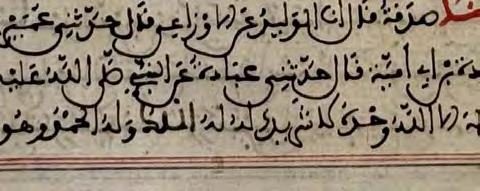 صدقة قال انا الوليد عن الاوزاعي قال حدثني عمير
دة بن ابي امية قال حدثني عبادة عن النبي صلى الله عليه
له الا الله وحده لا شريك له له الملك وله الحمد وهو